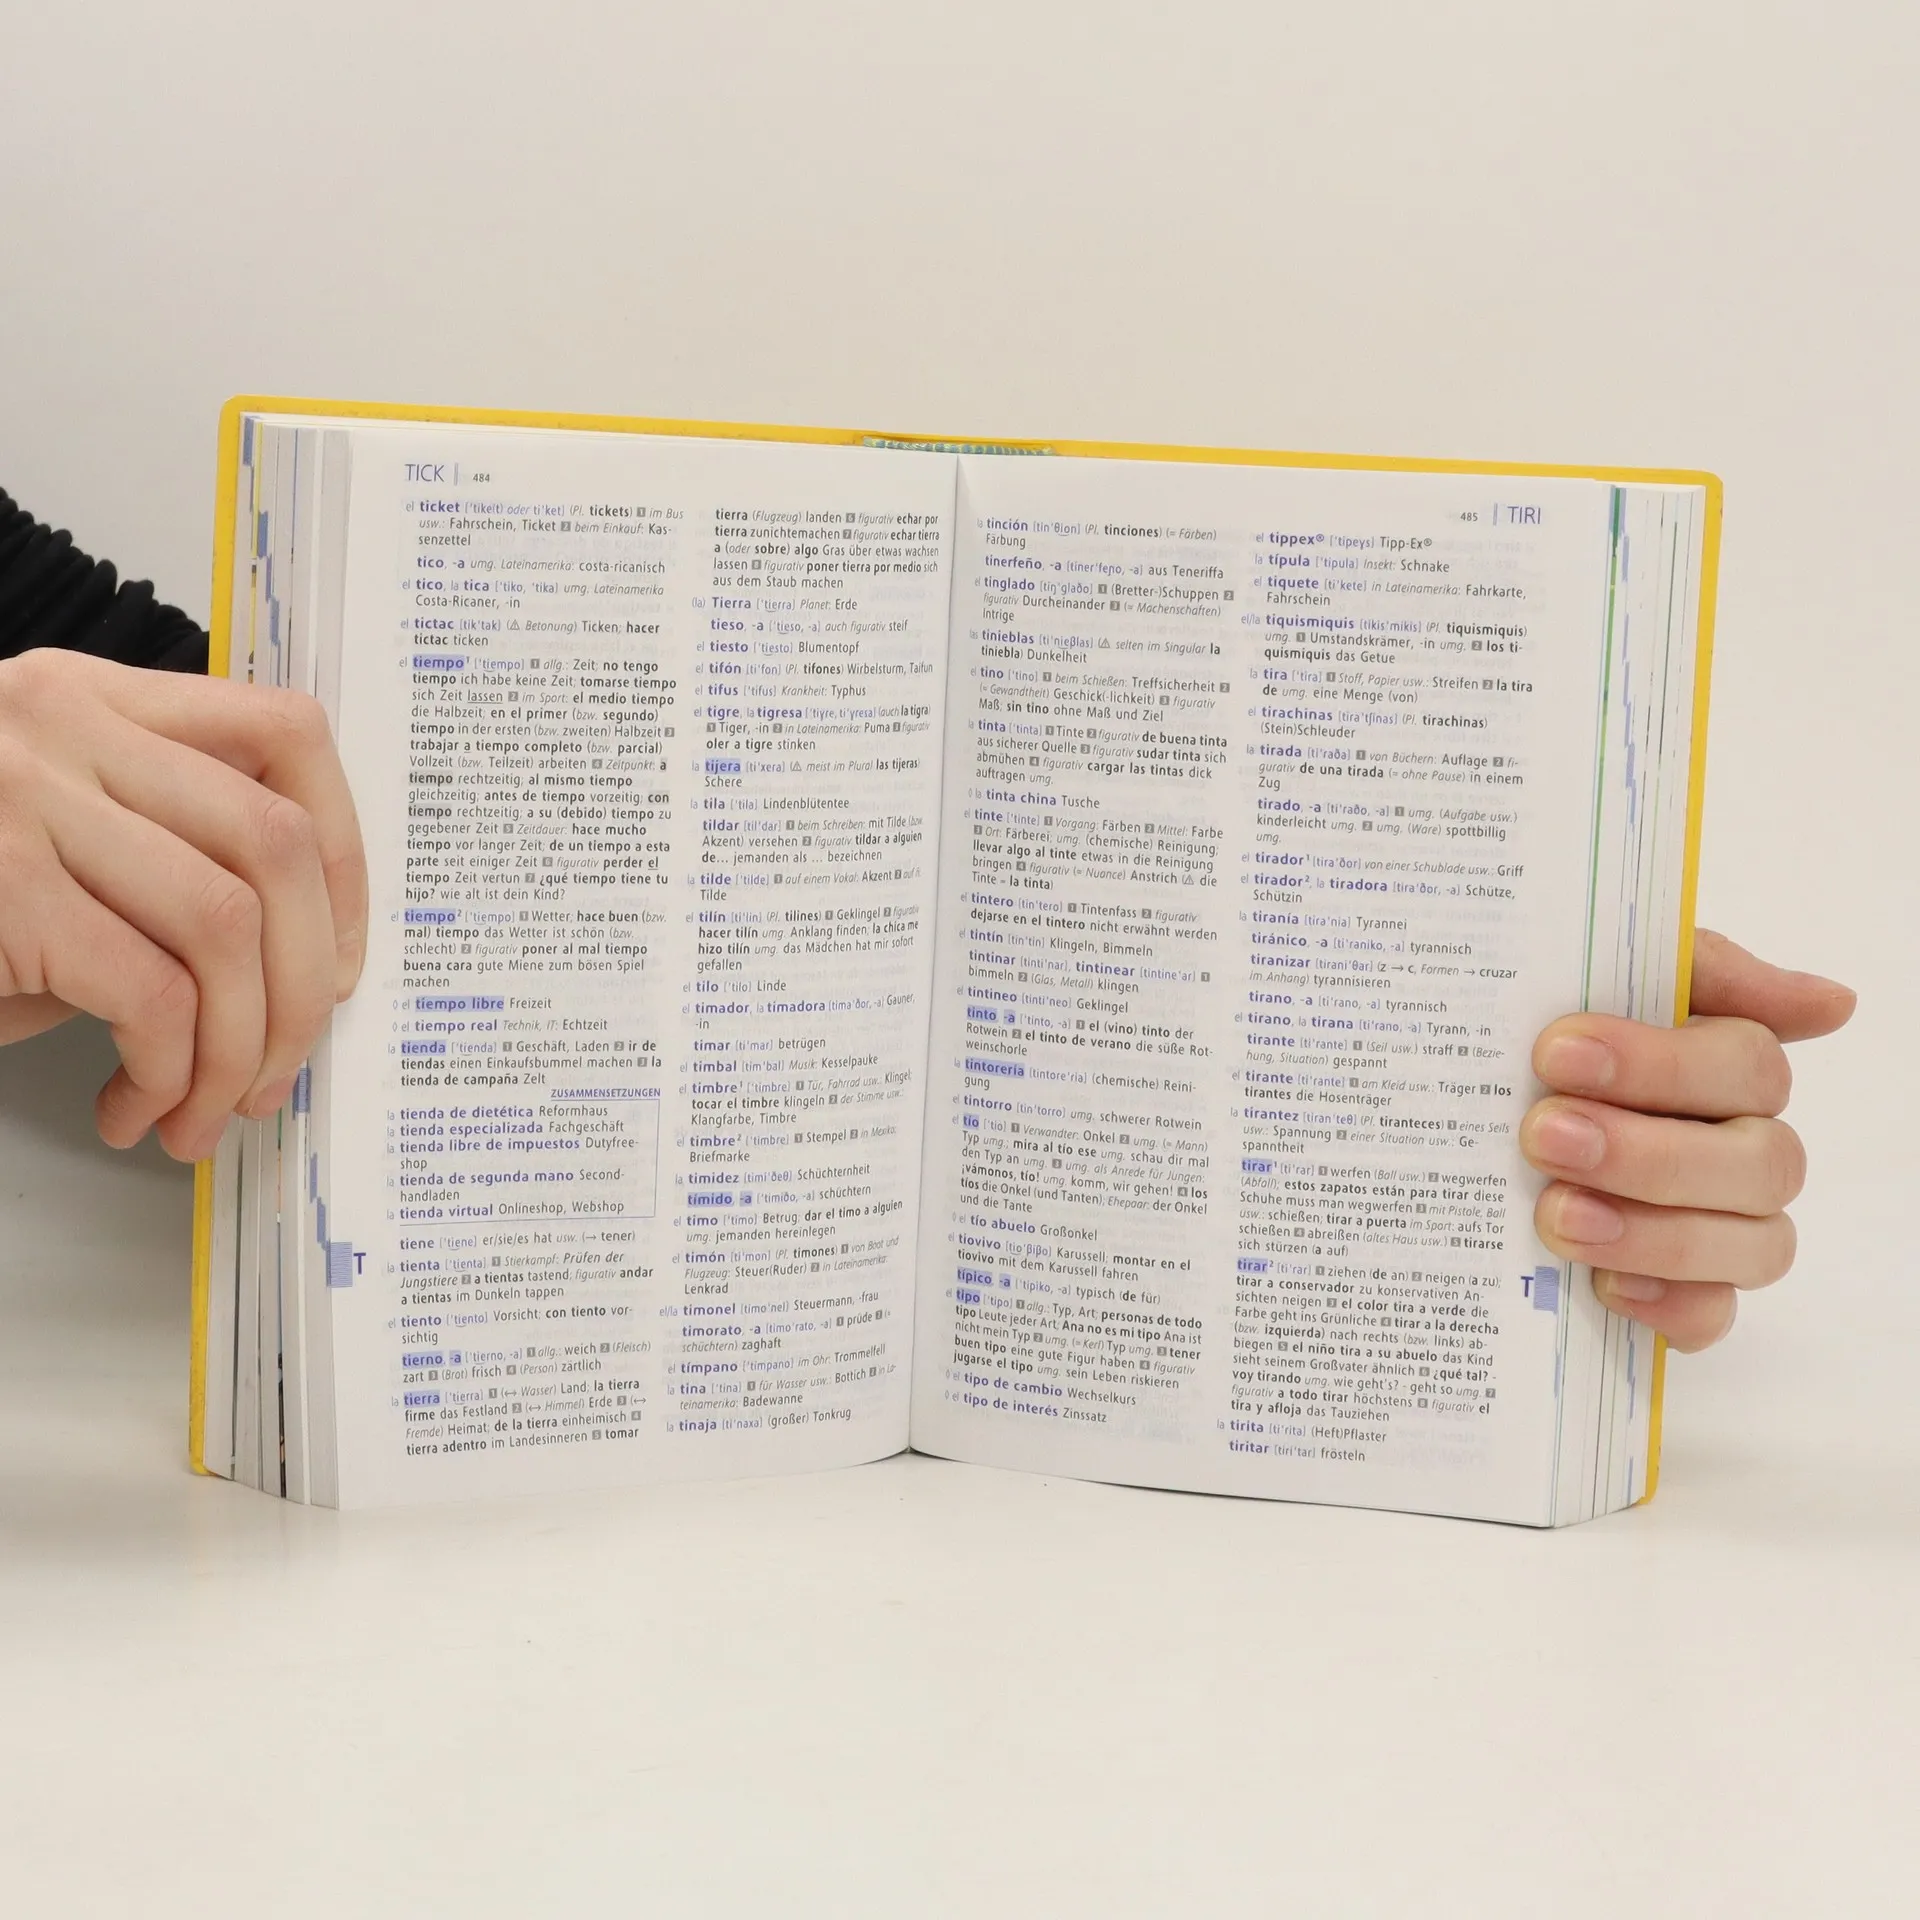 TICK 484
el ticket ['tike(t) oder ti'ket] (Pl. tickets) 1 im Bus
usw.: Fahrschein, Ticket 2 beim Einkauf: Kas-
senzettel
tico, -a umg. Lateinamerika: costa-ricanisch
el tico, la tica ['tiko, 'tika] umg. Lateinamerika
Costa-Ricaner, -in
el tictac [tik'tak] (⚠ Betonung) Ticken; hacer
tictac ticken
el tiempo¹ ['ti̯empo] 1 allg.: Zeit; no tengo
tiempo ich habe keine Zeit; tomarse tiempo
sich Zeit lassen 2 im Sport: el medio tiempo
die Halbzeit; en el primer (bzw. segundo)
tiempo in der ersten (bzw. zweiten) Halbzeit 3
trabajar a tiempo completo (bzw. parcial)
Vollzeit (bzw. Teilzeit) arbeiten 4 Zeitpunkt: a
tiempo rechtzeitig; al mismo tiempo
gleichzeitig; antes de tiempo vorzeitig; con
tiempo rechtzeitig; a su (debido) tiempo zu
gegebener Zeit 5 Zeitdauer: hace mucho
tiempo vor langer Zeit; de un tiempo a esta
parte seit einiger Zeit 6 figurativ perder el
tiempo Zeit vertun 7 ¿qué tiempo tiene tu
hijo? wie alt ist dein Kind?
el tiempo² ['ti̯empo] 1 Wetter; hace buen (bzw.
mal) tiempo das Wetter ist schön (bzw.
schlecht) 2 figurativ poner al mal tiempo
buena cara gute Miene zum bösen Spiel
machen
◊ el tiempo libre Freizeit
◊ el tiempo real Technik, IT: Echtzeit
la tienda ['ti̯enda] 1 Geschäft, Laden 2 ir de
tiendas einen Einkaufsbummel machen 3 la
tienda de campaña Zelt
ZUSAMMENSETZUNGEN
la tienda de dietética Reformhaus
la tienda especializada Fachgeschäft
la tienda libre de impuestos Dutyfree-
shop
la tienda de segunda mano Second-
handladen
la tienda virtual Onlineshop, Webshop
tiene ['ti̯ene] er/sie/es hat usw. (→ tener)
la tienta ['ti̯enta] 1 Stierkampf: Prüfen der
Jungstiere 2 a tientas tastend; figurativ andar
a tientas im Dunkeln tappen
el tiento ['ti̯ento] Vorsicht; con tiento vor-
sichtig
tierno, -a ['ti̯erno, -a] 1 allg.: weich 2 (Fleisch)
zart 3 (Brot) frisch 4 (Person) zärtlich
la tierra ['ti̯erra] 1 (↔ Wasser) Land; la tierra
firme das Festland 2 (↔ Himmel) Erde 3 (↔
Fremde) Heimat; de la tierra einheimisch 4
tierra adentro im Landesinneren 5 tomar
T
tierra (Flugzeug) landen 6 figurativ echar por
tierra zunichtemachen 7 figurativ echar tierra
a (oder sobre) algo Gras über etwas wachsen
lassen 8 figurativ poner tierra por medio sich
aus dem Staub machen
(la) Tierra ['ti̯erra] Planet: Erde
tieso, -a ['ti̯eso, -a] auch figurativ steif
el tiesto ['ti̯esto] Blumentopf
el tifón [ti'fon] (Pl. tifones) Wirbelsturm, Taifun
el tifus ['tifus] Krankheit: Typhus
el tigre, la tigresa ['tiɣre, ti'ɣresa] (auch la tigra)
1 Tiger, -in 2 in Lateinamerika: Puma 3 figurativ
oler a tigre stinken
la tijera [ti'xera] (⚠ meist im Plural las tijeras)
Schere
la tila ['tila] Lindenblütentee
tildar [til'dar] 1 beim Schreiben: mit Tilde (bzw.
Akzent) versehen 2 figurativ tildar a alguien
de... jemanden als ... bezeichnen
la tilde ['tilde] 1 auf einem Vokal: Akzent 2 auf ñ:
Tilde
el tilín [ti'lin] (Pl. tilines) 1 Geklingel 2 figurativ
hacer tilín umg. Anklang finden; la chica me
hizo tilín umg. das Mädchen hat mir sofort
gefallen
el tilo ['tilo] Linde
el timador, la timadora [tima'ðor, -a] Gauner,
-in
timar [ti'mar] betrügen
el timbal [tim'bal] Musik: Kesselpauke
el timbre¹ ['timbre] 1 Tür, Fahrrad usw.: Klingel;
tocar el timbre klingeln 2 der Stimme usw.:
Klangfarbe, Timbre
el timbre² ['timbre] 1 Stempel 2 in Mexiko:
Briefmarke
la timidez [timi'ðeθ] Schüchternheit
tímido, -a ['timiðo, -a] schüchtern
el timo ['timo] Betrug; dar el timo a alguien
umg. jemanden hereinlegen
el timón [ti'mon] (Pl. timones) 1 von Boot und
Flugzeug: Steuer(Ruder) 2 in Lateinamerika:
Lenkrad
el/la timonel [timo'nel] Steuermann, -frau
timorato, -a [timo'rato, -a] 1 prüde 2 (=
schüchtern) zaghaft
el tímpano ['timpano] im Ohr: Trommelfell
la tina ['tina] 1 für Wasser usw.: Bottich 2 in La-
teinamerika: Badewanne
la tinaja [ti'naxa] (großer) Tonkrug
485 TIRI
la tinción [tin'θi̯on] (Pl. tinciones) (= Färben)
Färbung
tinerfeño, -a [tiner'feɲo, -a] aus Teneriffa
el tinglado [tiŋ'glaðo] 1 (Bretter-)Schuppen 2
figurativ Durcheinander 3 (= Machenschaften)
Intrige
las tinieblas [ti'ni̯eβlas] (⚠ selten im Singular la
tiniebla) Dunkelheit
el tino ['tino] 1 beim Schießen: Treffsicherheit 2
(= Gewandtheit) Geschick(-lichkeit) 3 figurativ
Maß; sin tino ohne Maß und Ziel
la tinta ['tinta] 1 Tinte 2 figurativ de buena tinta
aus sicherer Quelle 3 figurativ sudar tinta sich
abmühen 4 figurativ cargar las tintas dick
auftragen umg.
◊ la tinta china Tusche
el tinte ['tinte] 1 Vorgang: Färben 2 Mittel: Farbe
3 Ort: Färberei; umg. (chemische) Reinigung;
llevar algo al tinte etwas in die Reinigung
bringen 4 figurativ (= Nuance) Anstrich (⚠ die
Tinte = la tinta)
el tintero [tin'tero] 1 Tintenfass 2 figurativ
dejarse en el tintero nicht erwähnt werden
el tintín [tin'tin] Klingeln, Bimmeln
tintinar [tinti'nar], tintinear [tintine'ar] 1
bimmeln 2 (Glas, Metall) klingen
el tintineo [tinti'neo] Geklingel
tinto, -a ['tinto, -a] 1 el (vino) tinto der
Rotwein 2 el tinto de verano die süße Rot-
weinschorle
la tintorería [tintore'ria] (chemische) Reini-
gung
el tintorro [tin'torro] umg. schwerer Rotwein
el tío ['tio] 1 Verwandter: Onkel 2 umg. (= Mann)
Typ umg.; mira al tío ese umg. schau dir mal
den Typ an umg. 3 umg. als Anrede für Jungen:
¡vámonos, tío! umg. komm, wir gehen! 4 los
tíos die Onkel (und Tanten); Ehepaar: der Onkel
und die Tante
◊ el tío abuelo Großonkel
el tiovivo [ti̯o'βiβo] Karussell; montar en el
tiovivo mit dem Karussell fahren
típico, -a ['tipiko, -a] typisch (de für)
el tipo ['tipo] 1 allg.: Typ, Art; personas de todo
tipo Leute jeder Art; Ana no es mi tipo Ana ist
nicht mein Typ 2 umg. (= Kerl) Typ umg. 3 tener
buen tipo eine gute Figur haben 4 figurativ
jugarse el tipo umg. sein Leben riskieren
◊ el tipo de cambio Wechselkurs
◊ el tipo de interés Zinssatz
el tippex® ['tipeɣs] Tipp-Ex®
la típula ['tipula] Insekt: Schnake
el tiquete [ti'kete] in Lateinamerika: Fahrkarte,
Fahrschein
el/la tiquismiquis [tikis'mikis] (Pl. tiquismiquis)
umg. 1 Umstandskrämer, -in umg. 2 los ti-
quismiquis das Getue
la tira ['tira] 1 Stoff, Papier usw.: Streifen 2 la tira
de umg. eine Menge (von)
el tirachinas [tira'tʃinas] (Pl. tirachinas)
(Stein)Schleuder
la tirada [ti'raða] 1 von Büchern: Auflage 2 fi-
gurativ de una tirada (= ohne Pause) in einem
Zug
tirado, -a [ti'raðo, -a] 1 umg. (Aufgabe usw.)
kinderleicht umg. 2 umg. (Ware) spottbillig
umg.
el tirador¹ [tira'ðor] von einer Schublade usw.: Griff
el tirador², la tiradora [tira'ðor, -a] Schütze,
Schützin
la tiranía [tira'nia] Tyrannei
tiránico, -a [ti'raniko, -a] tyrannisch
tiranizar [tirani'θar] (z → c, Formen → cruzar
im Anhang) tyrannisieren
tirano, -a [ti'rano, -a] tyrannisch
el tirano, la tirana [ti'rano, -a] Tyrann, -in
tirante [ti'rante] 1 (Seil usw.) straff 2 (Bezie-
hung, Situation) gespannt
el tirante [ti'rante] 1 am Kleid usw.: Träger 2 los
tirantes die Hosenträger
la tirantez [tiran'teθ] (Pl. tiranteces) 1 eines Seils
usw.: Spannung 2 einer Situation usw.: Ge-
spanntheit
tirar¹ [ti'rar] 1 werfen (Ball usw.) 2 wegwerfen
(Abfall); estos zapatos están para tirar diese
Schuhe muss man wegwerfen 3 mit Pistole, Ball
usw.: schießen; tirar a puerta im Sport: aufs Tor
schießen 4 abreißen (altes Haus usw.) 5 tirarse
sich stürzen (a auf)
tirar² [ti'rar] 1 ziehen (de an) 2 neigen (a zu);
tirar a conservador zu konservativen An-
sichten neigen 3 el color tira a verde die
Farbe geht ins Grünliche 4 tirar a la derecha
(bzw. izquierda) nach rechts (bzw. links) ab-
biegen 5 el niño tira a su abuelo das Kind
sieht seinem Großvater ähnlich 6 ¿qué tal? -
voy tirando umg. wie geht's? - geht so umg. 7
figurativ a todo tirar höchstens 8 figurativ el
tira y afloja das Tauziehen
la tirita [ti'rita] (Heft)Pflaster
tiritar [tiri'tar] frösteln
T